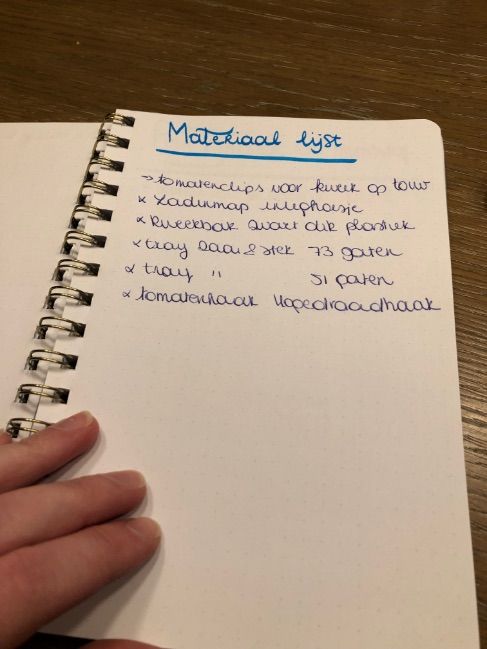 Materiaal lijst
→ tomatenclips voor kweek op touw
× Zadenmap insteghoesje
× Kweekbak zwart dik plastiek
× tray zaai & stek 73 gaten
× tray " 51 gaten
× tomatenhaak hogedraadhaak